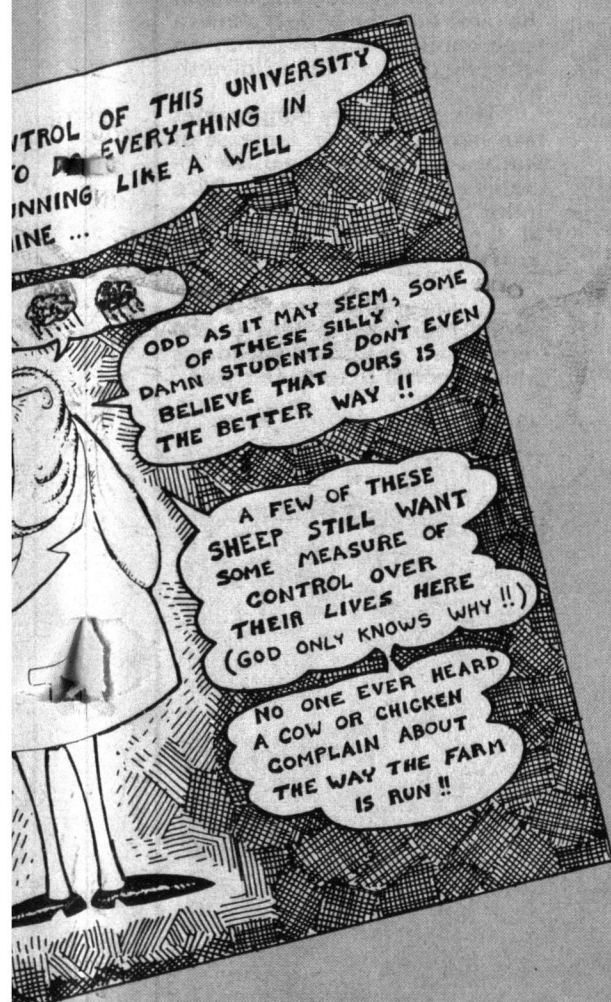 NTROL OF THIS UNIVERSITY
TO EVERYTHING IN
UNNING LIKE A WELL
INE ...
ODD AS IT MAY SEEM, SOME
OF THESE SILLY
DAMN STUDENTS DON'T EVEN
BELIEVE THAT OURS IS
THE BETTER WAY !!
A FEW OF THESE
SHEEP STILL WANT
SOME MEASURE OF
CONTROL OVER
THEIR LIVES HERE
(GOD ONLY KNOWS WHY !!)
NO ONE EVER HEARD
A COW OR CHICKEN
COMPLAIN ABOUT
THE WAY THE FARM
IS RUN !!